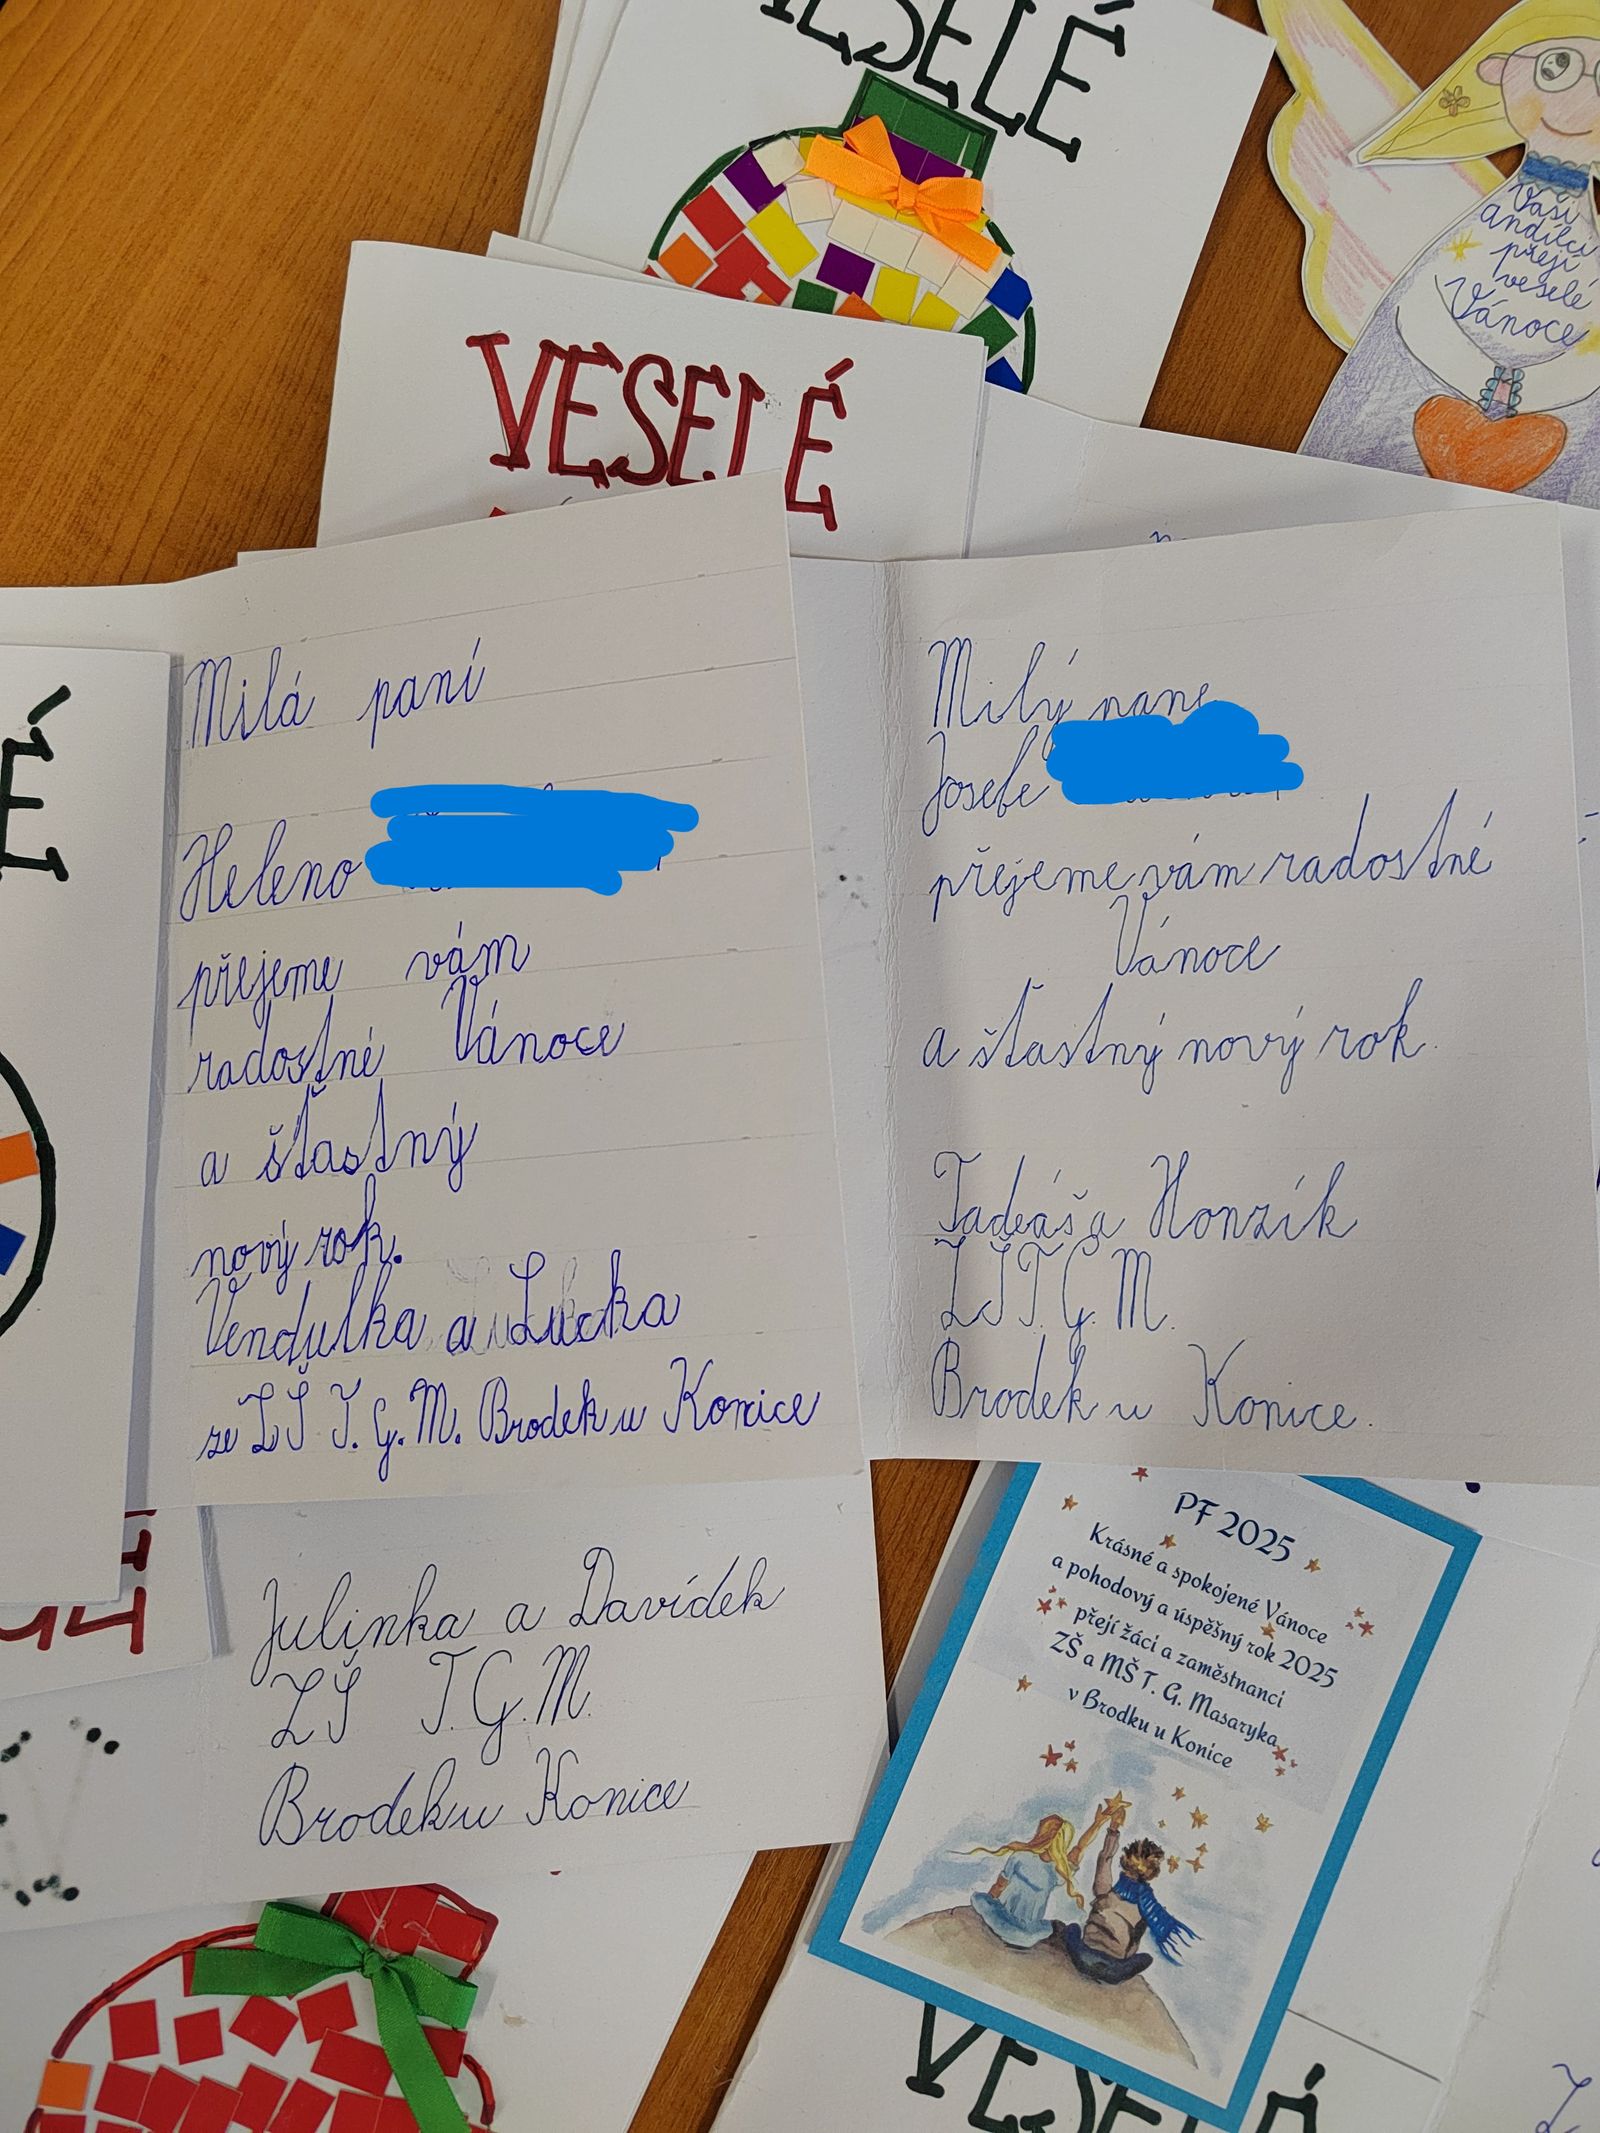 VESELÉ
Vaši
andílci
přejí
veselé
Vánoce
VESELÉ
Milá paní
Heleno
přejeme vám
radostné Vánoce
a šťastný
nový rok.
Vendulka a Lucka
ze ZŠ T. G. M. Brodek u Konice
Milý pane
Josefe
přejeme vám radostné
Vánoce
a šťastný nový rok.
Tadeáš a Honzík
ZŠ T. G. M.
Brodek u Konice.
Julinka a Davídek
ZŠ T. G. M.
Brodek u Konice
PF 2025
Krásné a spokojené Vánoce
a pohodový a úspěšný rok 2025
přejí žáci a zaměstnanci
ZŠ a MŠ T. G. Masaryka
v Brodku u Konice
VESELÉ